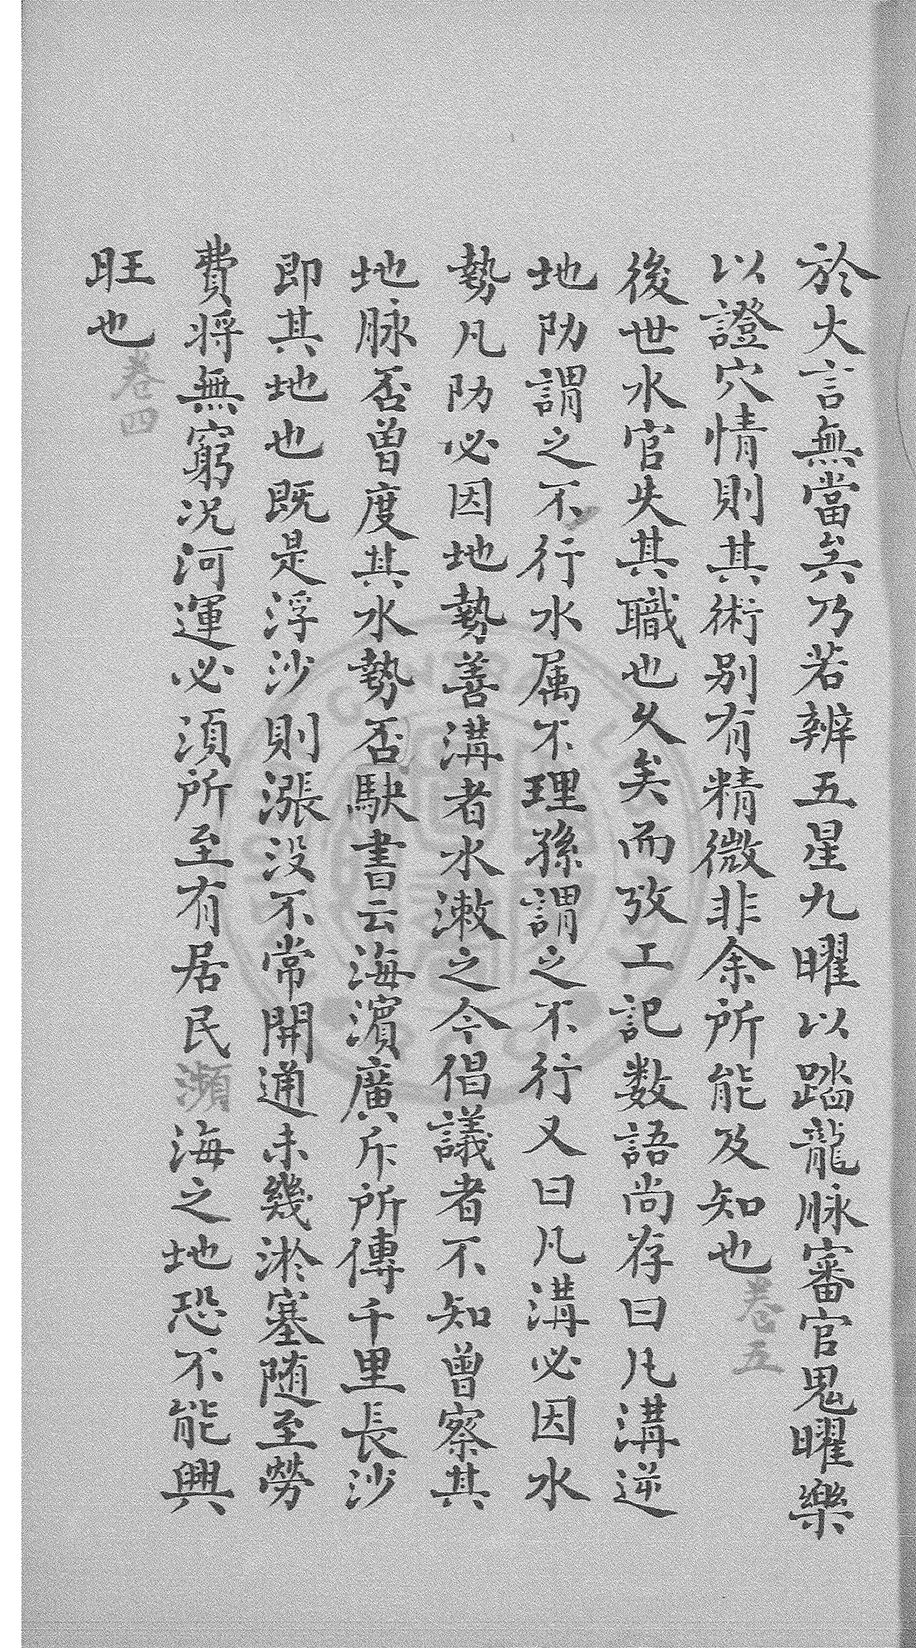 於大言無當矣乃若辨五星九曜以踏龍脉審官鬼曜樂
以證穴情則其術别有精微非余所能及知也卷五
後世水官失其職也久矣而攷工記数語尚存曰凡溝逆
地阞謂之不行水属不理孫謂之不行又曰凡溝必因水
勢凡防必因地勢善溝者水漱之今倡議者不知曾察其
地脉否曾度其水勢否駃書云海濵廣斥所傳千里長沙
即其地也既是浮沙則漲没不常開通未幾淤塞随至勞
費将無窮况河運必須所至有居民瀕海之地恐不能興
旺也卷四